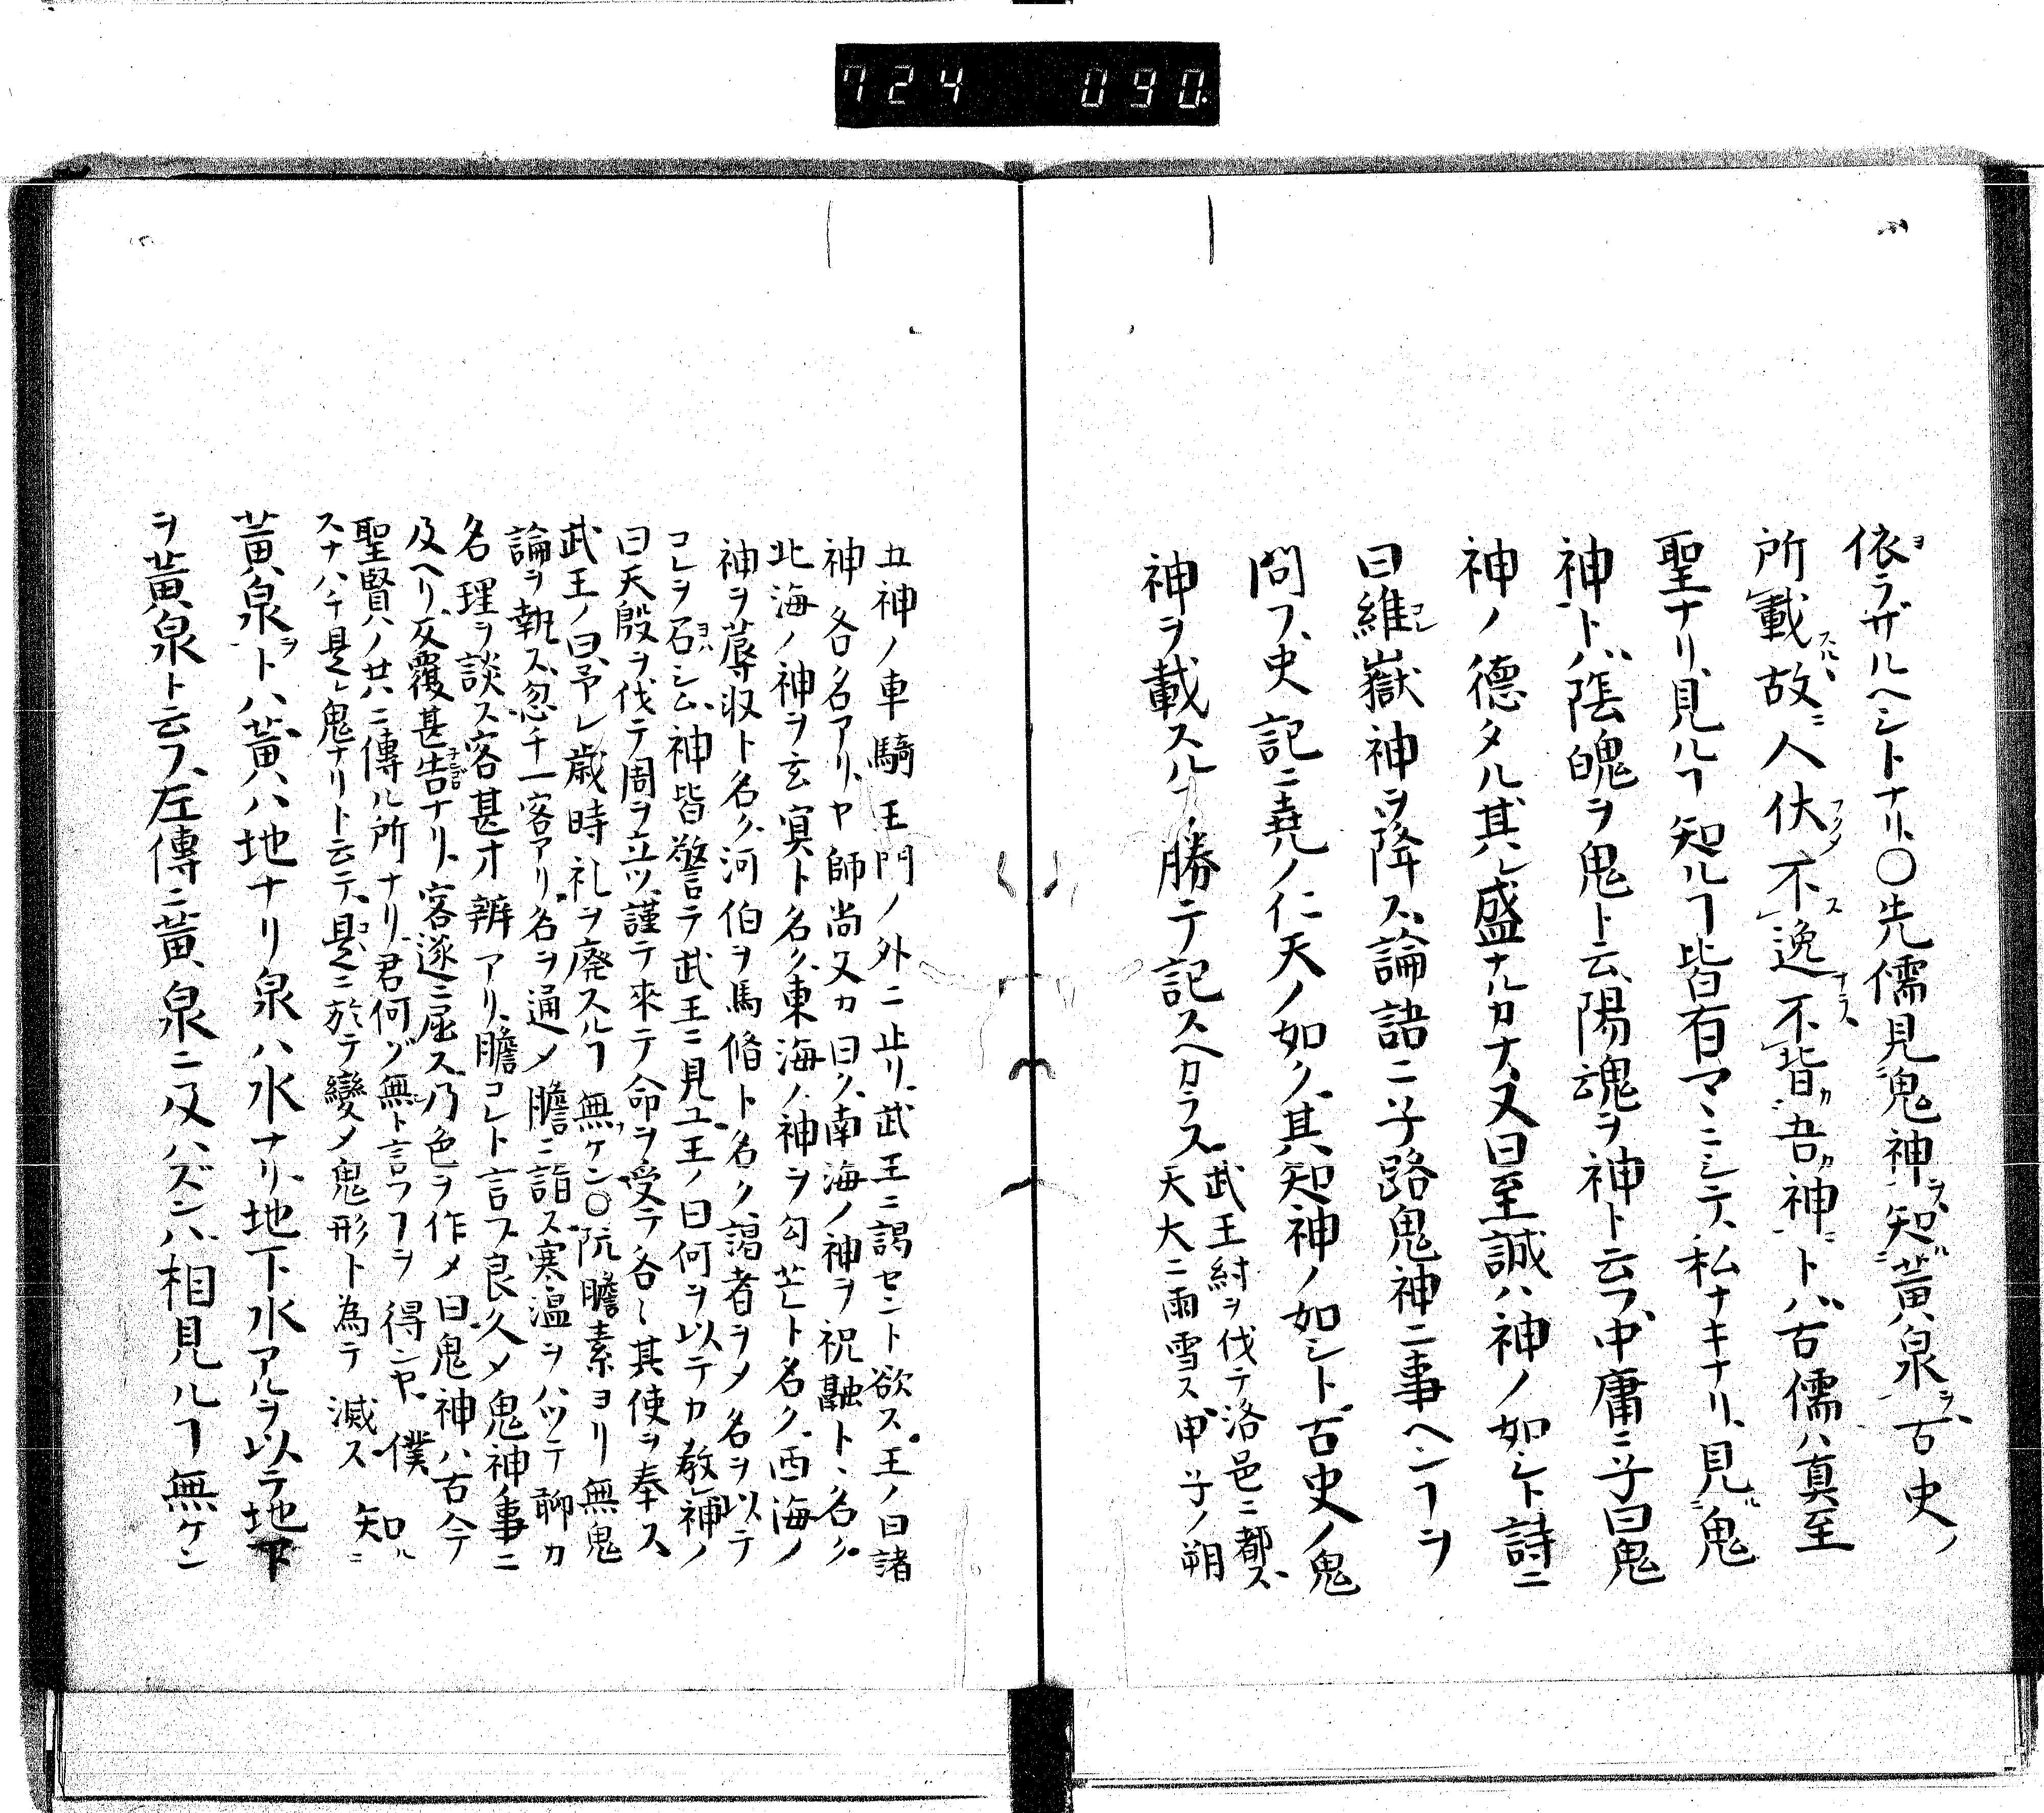 724 090.
依ラザルヘシトナリ、〇先儒見鬼神知黄泉古史ノ
所載故ニ人伏不逸不皆吾神トハ古儒ハ真至
聖ナリ、見ルヿ知ルヿ皆有マヽニシテ、私ナキナリ、見鬼
神トハ、陰魄ヲ鬼ト云、陽魂ヲ神ト云フ、中庸ニ子曰鬼
神ノ德タル其レ盛ナルカナ、又曰至誠ハ神ノ如シト詩ニ
曰維嶽神ヲ降ス、論語ニ子路鬼神ニ事ヘンヿヲ
問フ、史記ニ堯ノ仁天ノ如ク、其知神ノ如シト、古史ノ鬼
神ヲ載スルヿ、勝テ記スヘカラス
武王紂ヲ伐テ洛邑ニ都ズ
天大ニ雨雪ス、甲子ノ朔
五神ノ車騎王門ノ外ニ止リ、武王ニ謁セント欲ス、王ノ曰諸
神各名アリヤ師尚又カ曰ク、南海ノ神ヲ祝融ト名ク、
北海ノ神ヲ玄冥ト名ク、東海ノ神ヲ勾芒ト名ク、西海ノ
神ヲ蓐収ト名ク、河伯ヲ馮脩ト名ク、謁者ヲメ名ヲ以テ
コレヲ召シム、神皆驚テ武王ニ見ユ王ノ曰何ヲ以テカ教神ノ
曰天殷ヲ伐テ周ヲ立ツ、謹テ來テ命ヲ受テ各〻其使ヲ奉ス
武王ノ曰、予レ歳時礼ヲ廃スルヿ無ケン〇阮瞻素ヨリ無鬼
論ヲ執ズ、忽チ一客アリ、名ヲ通メ瞻ニ詣ス、寒温ヲハツテ聊カ
名理ヲ談ス、客甚才辨アリ、瞻コレト言フ良久メ鬼神ノ事ニ
及ヘリ、反覆甚苦ナリ、客遂ニ屈ス、乃色ヲ作メ曰鬼神ハ古今
聖賢ハノ共ニ傳ル所ナリ、君何ゾ無ト言フヿヲ得ンヤ、僕
スナハチ是レ鬼ナリト云テ、是ニ於テ變メ鬼形ト為テ滅ス知ル
黄泉トハ、黄ハ地ナリ泉ハ水ナリ、地下水アルヲ以テ地下
ヲ黄泉ト云フ、左傳ニ黄泉ニ及ハズンハ、相見ルヿ無ケン